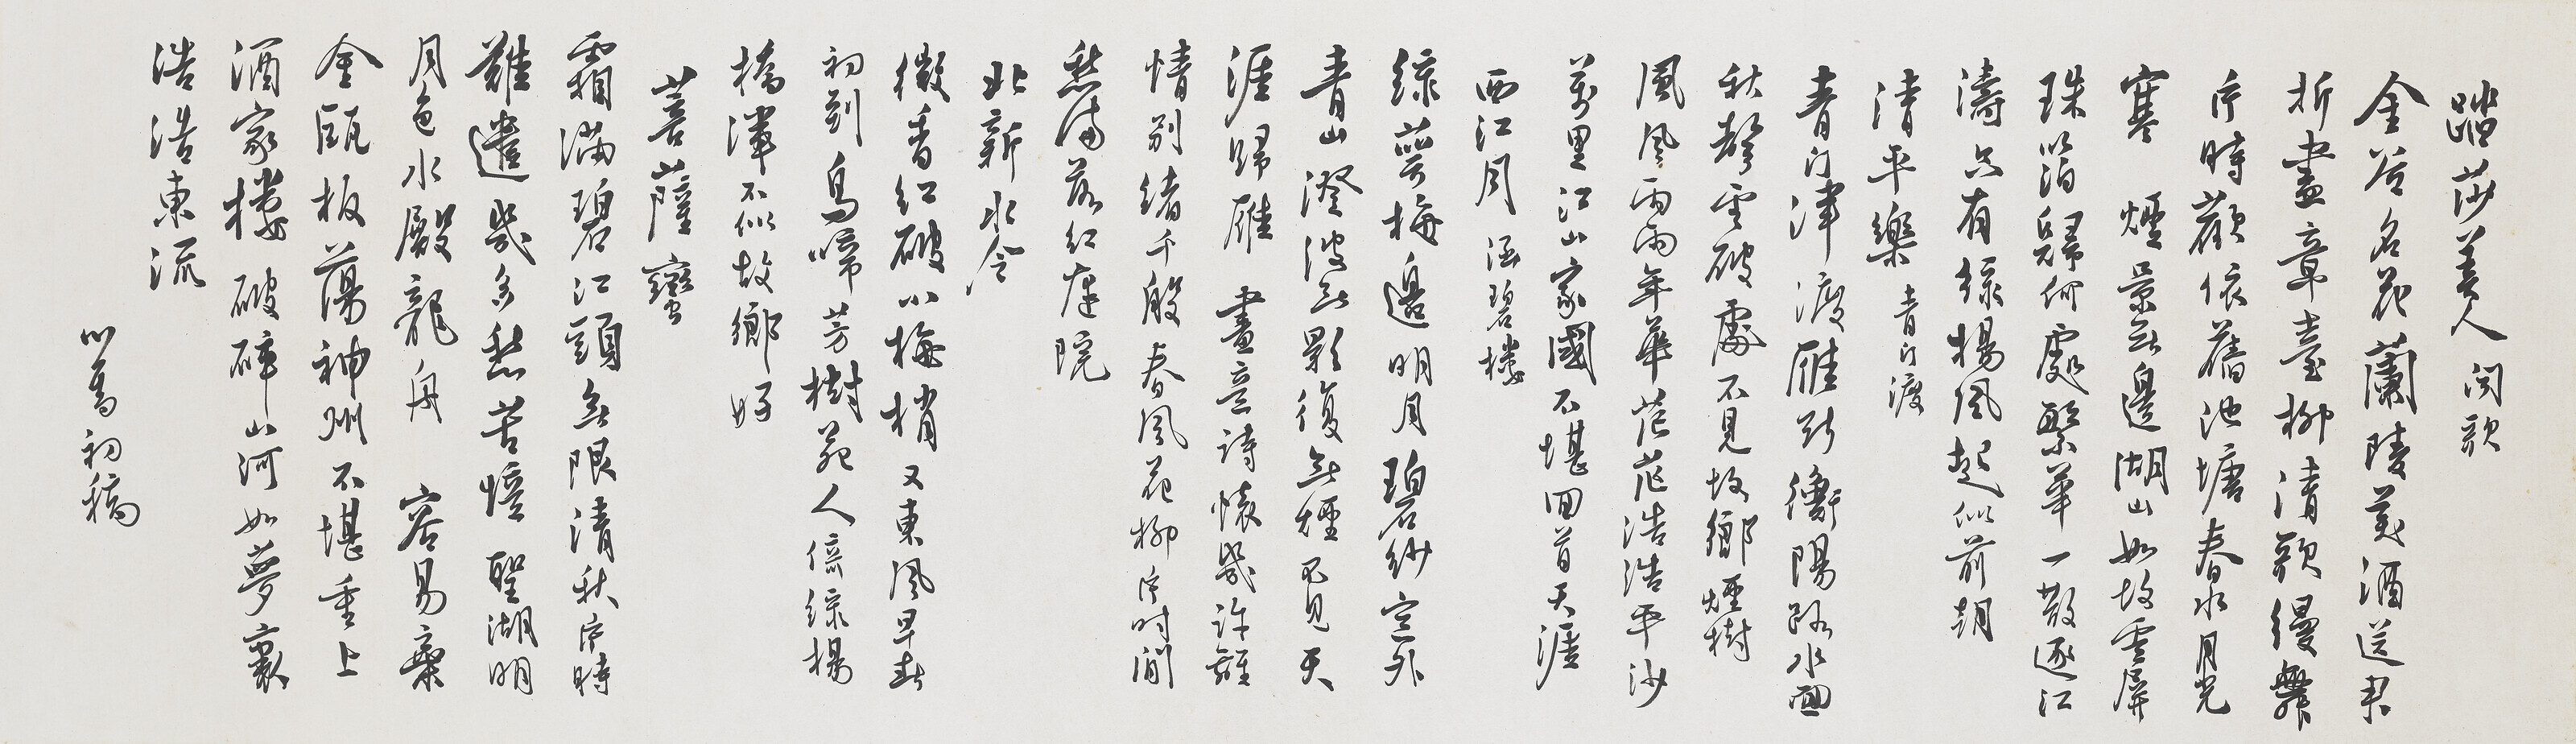 踏莎美人 聞歌
金谷名花蘭陵美酒送君
折盡章臺柳清歌縵舞
片時歡依舊池塘春水月光
寒 煙景無邊湖山如故雲屏
珠箔歸何處繁華一散逐江
濤只有綠楊風起似前朝
清平樂 青門渡
青門津渡雁斷衡陽路水面
秋聲雲破處不見故鄉煙樹
風風雨雨年華茫茫浩浩平沙
萬里江山家國不堪回首天涯
西江月 涵碧樓
綠萼梅邊明月碧紗窗外
青山澄波無影復無煙不見天
涯歸雁 畫意詩懷幾許離
情別緒千般春風花柳片時間
愁滿落紅庭院
北新水令
微香紅破小梅梢又東風早春
初到鳥啼芳樹苑人倚綠楊
橋渾不似故鄉好
菩薩蠻
霜滿碧江頭無限清秋片時
難遣幾多愁苦憶聖湖明
月色水殿龍舟 容易棄
金甌板蕩神州不堪重上
酒家樓破碎山河如夢裏
浩浩東流
心畬初稿